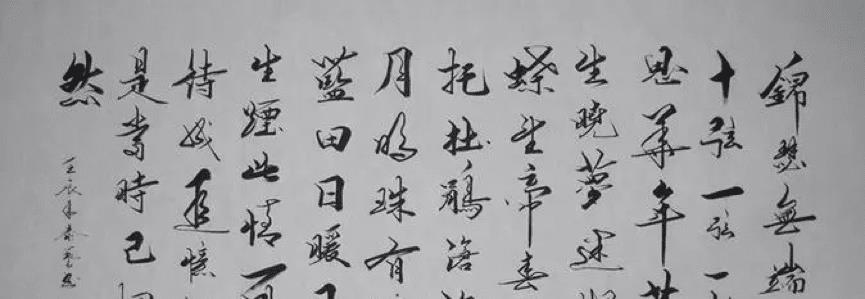 錦瑟無端
十弦一弦一
思華年
生曉夢迷
蝶望帝春
托杜鵑滄
月明珠有
藍田日暖
生煙此情可
待成追憶
是當時已
然
壬辰年春